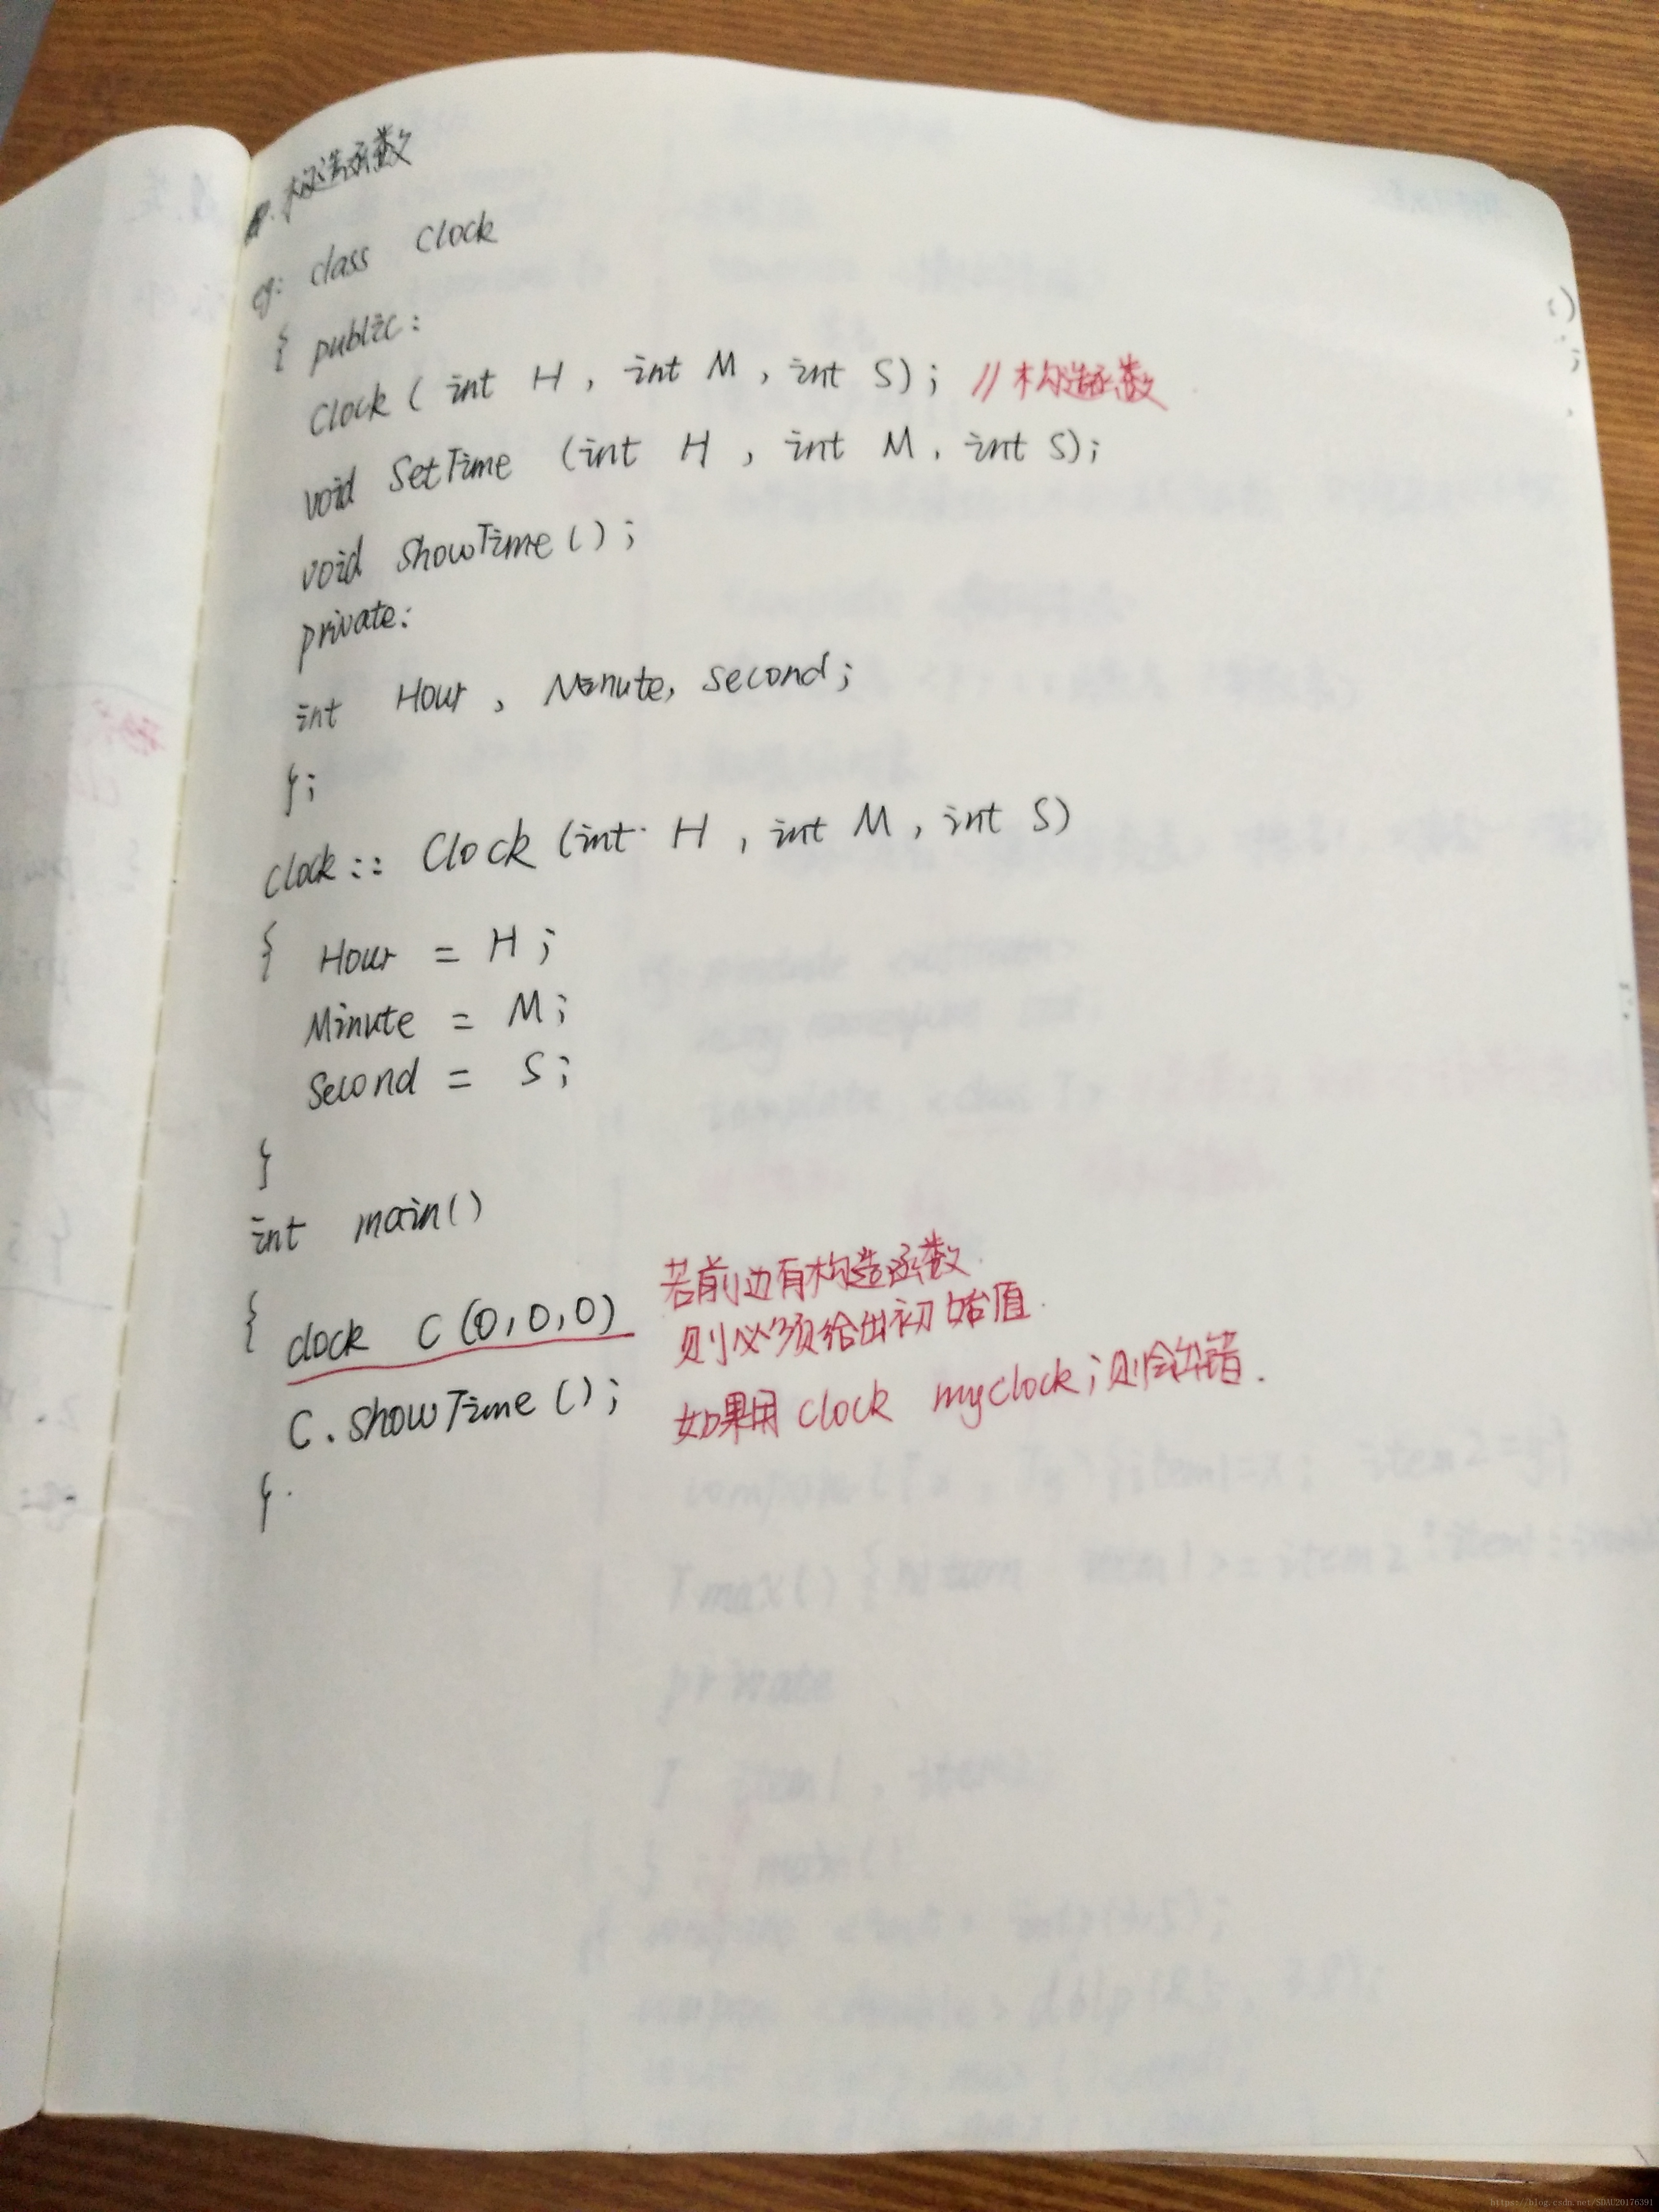 构造函数
eg: class Clock
{ public:
Clock ( int H , int M , int S); //构造函数
void SetTime (int H , int M , int S);
void ShowTime ( );
private:
int Hour , Minute, Second;
};
Clock :: Clock (int H , int M , int S)
{ Hour = H ;
Minute = M ;
Second = S ;
}
int main()
{ clock C (0, 0, 0)
若前边有构造函数
则必须给出初始值.
C. showTime ( );
如果用 clock myclock ; 则会出错.
}.
https://blog.csdn.net/SDAU20176391